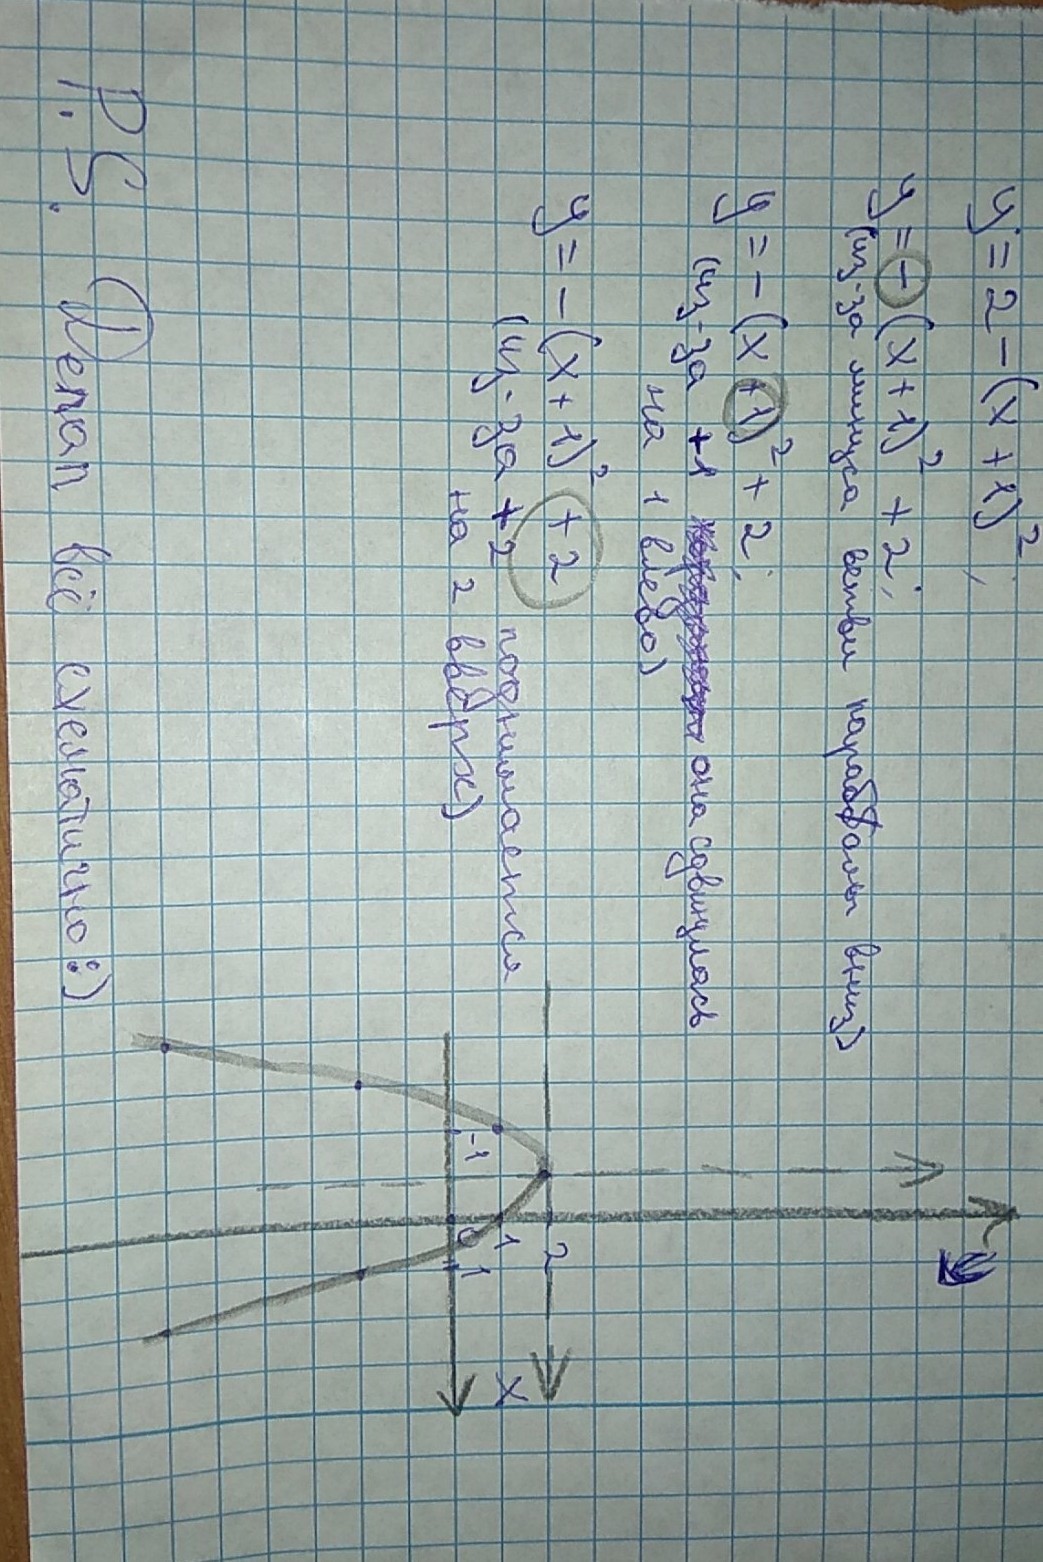 y = 2 - (x + 1)²;
y = - (x + 1)² + 2;
(из-за минуса ветви параболы вниз)
y = - (x + 1)² + 2;
(из-за +1 она сдвинулась
на 1 влево)
y = - (x + 1)² + 2
(из-за +2 поднимается
на 2 вверх)
P.S. Делал всё схематично :)
y
2
1
-1 0 1
x